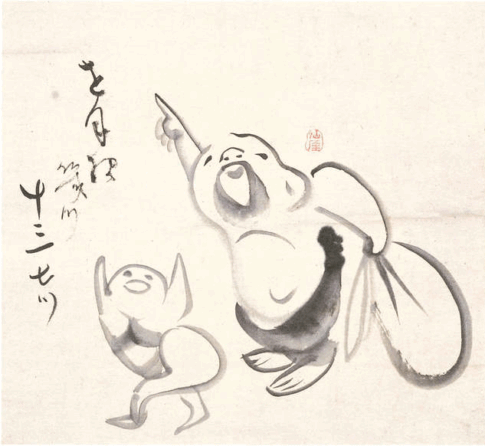 を月様幾ツ
十三七ツ
仙厓